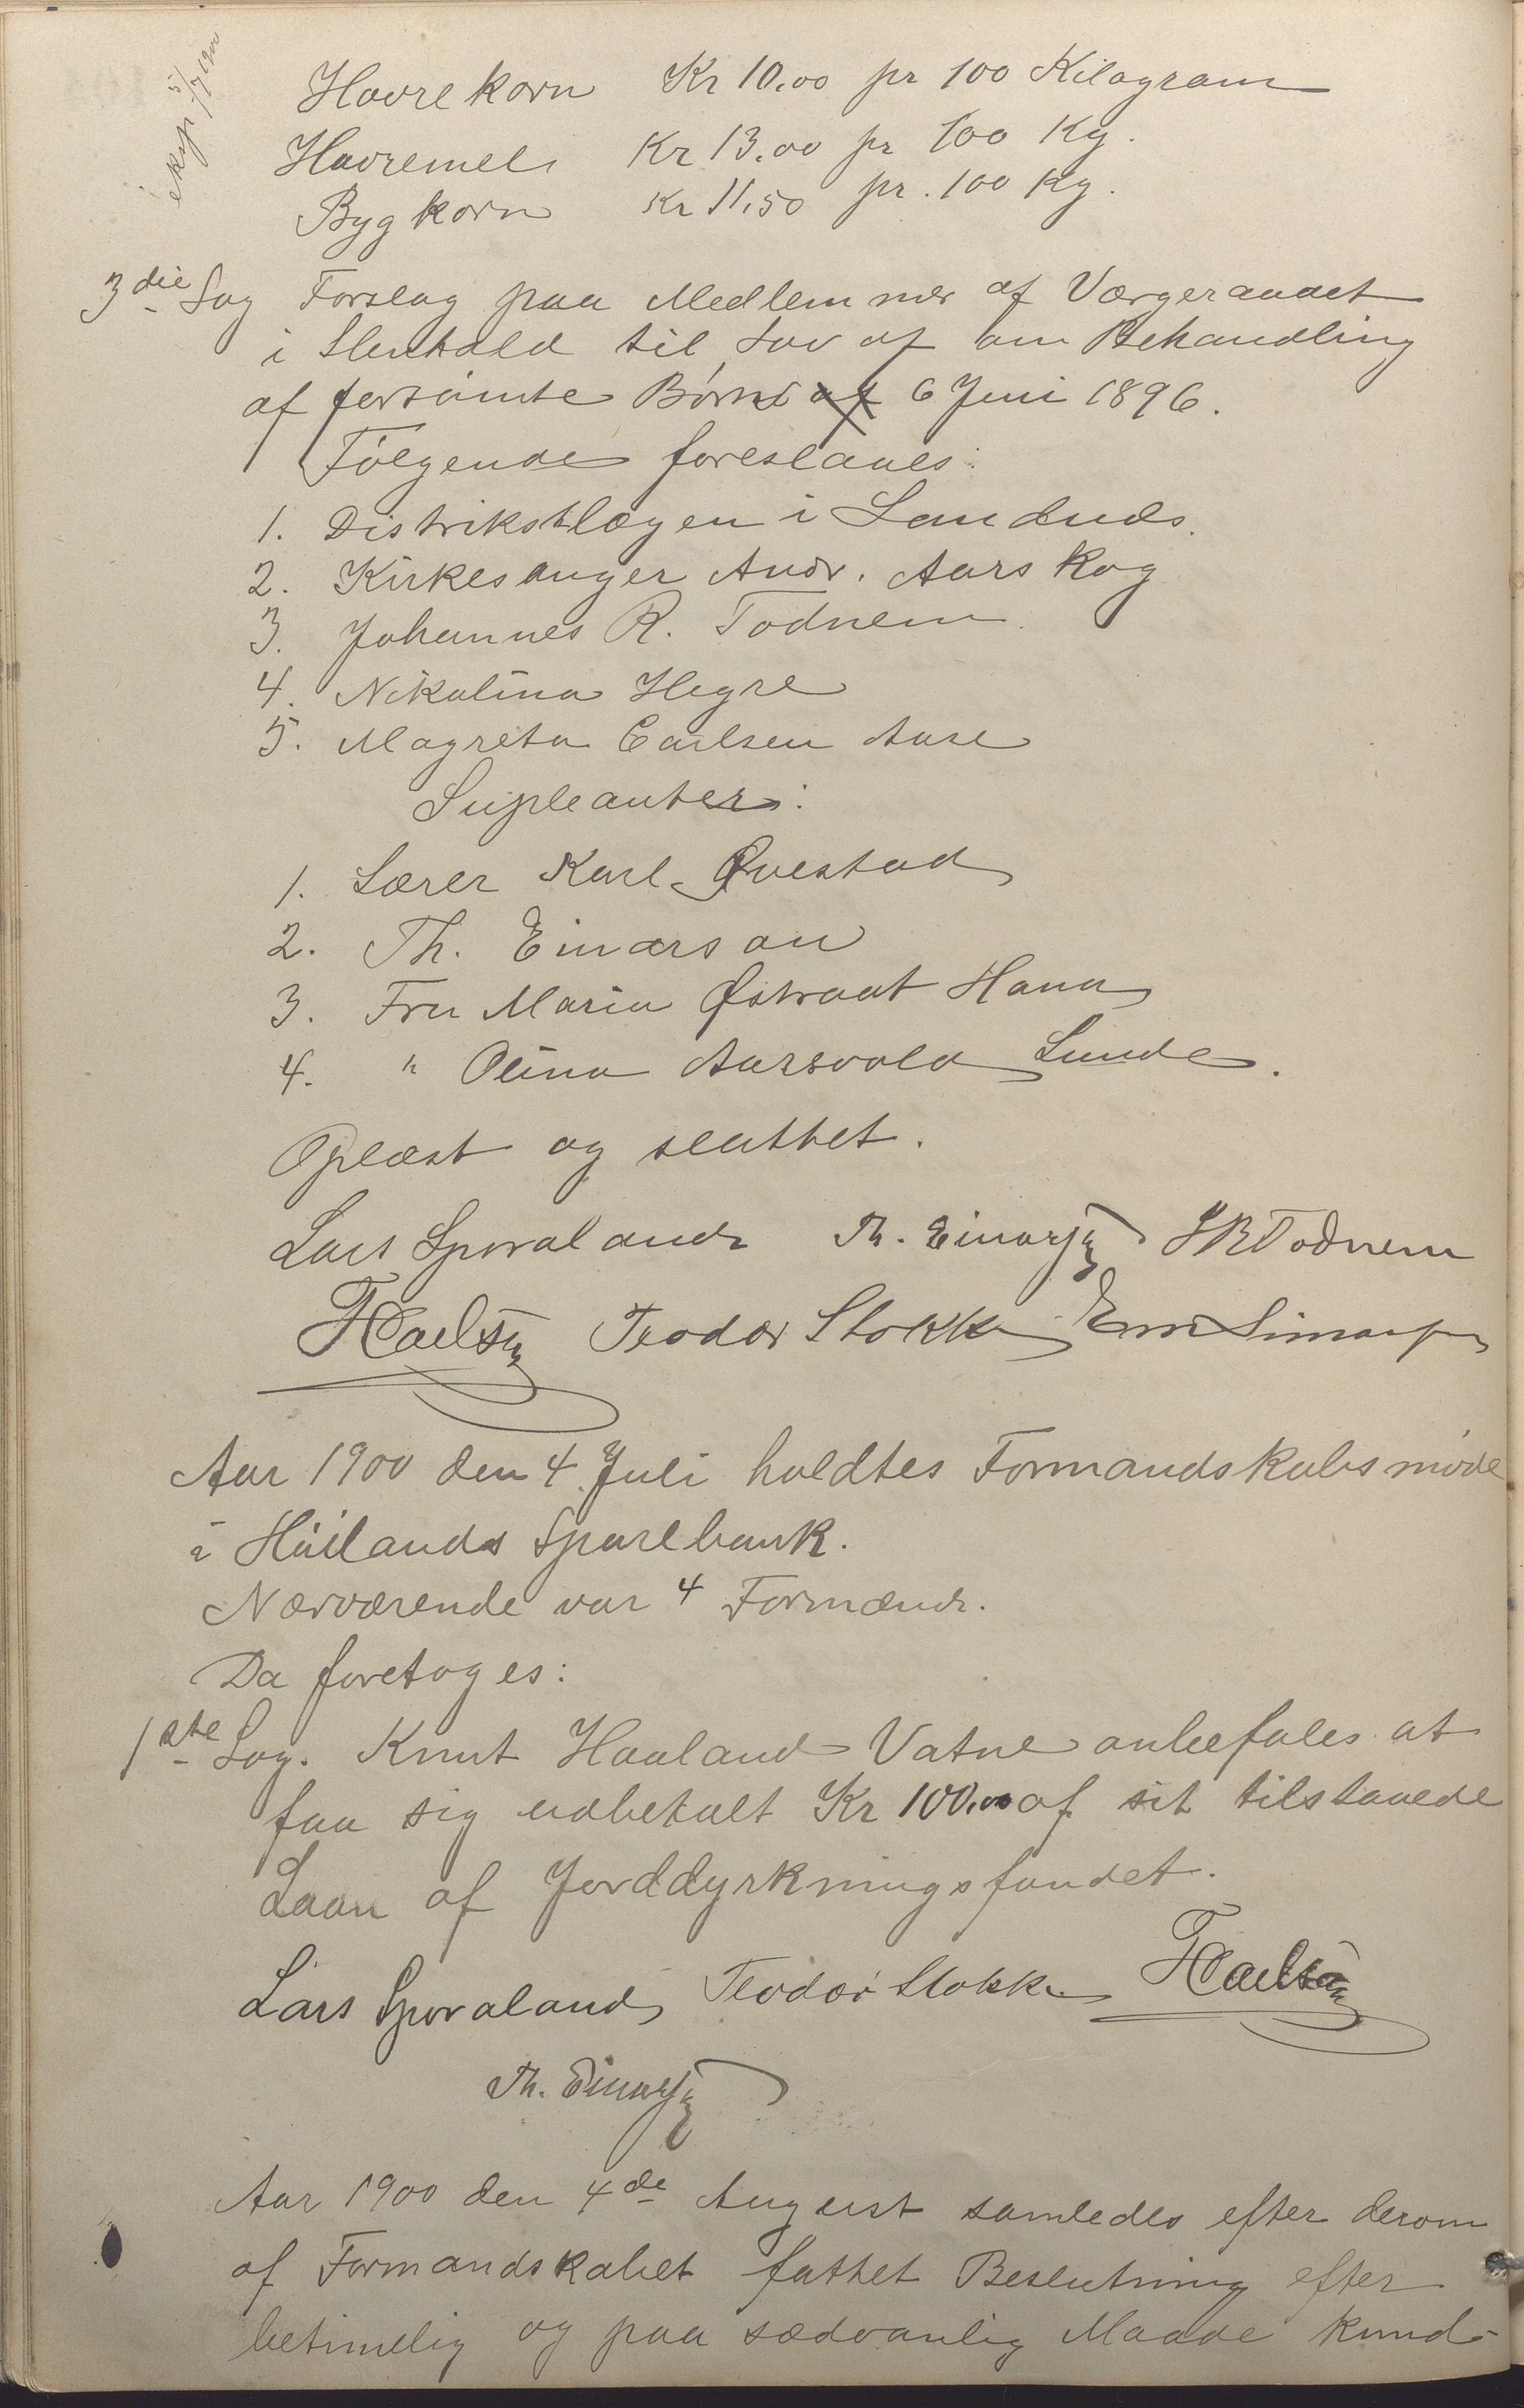 eksp. 5/7 1900
Havrekorn Kr 10.00 pr 100 Kilogram
Havremel Kr 13.00 pr 100 Kg.
Bygkorn Kr 11,50 pr. 100 Kg.
3die Sag Forslag paa Medlemmer af Værgeraadet
i Henhold til Lov af om Behandling
af forsømte Børn af 6 Juni 1896.
Følgende foreslaaes:
1. Distriktslægen i Sandnes.
2. Kirkesanger Andr. Aarskog
3. Johannes R. Todnem.
4. Nikolina Hegre
5. Magreta Carlsen Aase
Supleanter:
1. Lærer Karl Qvestad
2. Th. Einarson
3. Fru Maria Østraat Hana
4. " Olina Aarsvold Lunde.
Oplæst og sluttet.
Lars Sporaland Th. Einarsen J R Todnem
T Carlsen Teodor Stokke
Aar 1900 den 4. Juli holdtes Formandskabsmøde
i Høilands Sparebank.
Nærværende var 4 Formænd.
Da foretoges:
1ste Sag. Knut Haaland Vatne anbefales at
faa sig udbetalt Kr 100.00 af sit tilstaaede
Laan af Jorddyrkningsfondet.
Lars Sporaland Teodor Stokke T Carlsen
Th. Einarsen
Aar 1900 den 4de August samledes efter derom
af Formandskabet fattet Beslutning efter
betimelig og paa sædvanlig Maade kund-